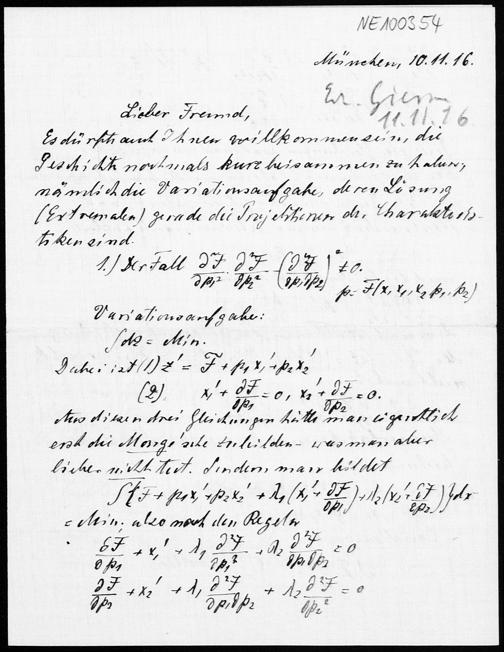 NE100354
München, 10.11.16.
11.11.16
Lieber Freund,
Es dürfte auch Ihnen willkommen sein, die
Geschichte nochmals kurz beisammen zu haben,
nämlich die Variationsaufgabe, deren Lösung
(Extremalen) gerade die Projektionen der Charakteris-
tiken sind.
1.) Der Fall ∂²F/∂p₁² ∂²F/∂p₂² − (∂²F/∂p₁∂p₂)² ≠ 0.
p = F(x, x₁, x₂, p₁, p₂)
Variationsaufgabe:
∫dz = Min.
Dabei ist (1) z' = F + p₁x₁' + p₂x₂'
(2) x₁' + ∂F/∂p₁ = 0, x₂' + ∂F/∂p₂ = 0.
Aus diesen drei Gleichungen hätte man eigentlich
erst die Mongesche zu bilden – was man aber
lieber nicht tut. Sondern man bildet
∫{F + p₁x₁' + p₂x₂' + λ₁(x₁' + ∂F/∂p₁) + λ₂(x₂' + ∂F/∂p₂)}dx
= Min. also nach den Regeln
∂F/∂p₁ + x₁' + λ₁ ∂²F/∂p₁² + λ₂ ∂²F/∂p₁∂p₂ = 0
∂F/∂p₂ + x₂' + λ₁ ∂²F/∂p₁∂p₂ + λ₂ ∂²F/∂p₂² = 0